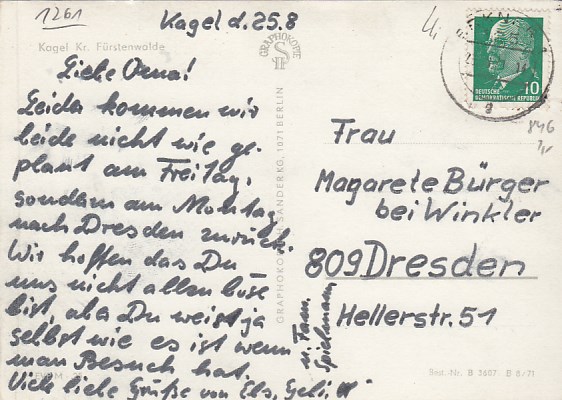 1261
Kagel d. 25.8
Kagel Kr. Fürstenwalde
Liebe Oma!
Leida kommen wir
beide nicht wie ge-
plant am Freitag,
sondern am Montag
nach Dresden zurück.
Wir hoffen das Du
uns nicht allen böse
bist, aba Du weist ja
selbst wie es ist wenn
man Besuch hat.
Viele liebe Grüße von Els, Gabi,
u. Fam.
Spielmann
GRAPHOKOPIE
GRAPHOKOPIE SANDER KG, 1871 BERLIN
DEUTSCHE
DEMOKRATISCHE REPUBLIK
10
846
Frau
Magarete Bürger
bei Winkler
809 Dresden
Hellerstr. 51
Best.-Nr. B 3607 B 8/71